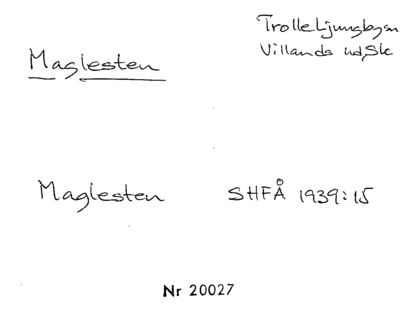 Maglesten
Trolle Ljungby sn
Villands hd, Sk
Maglesten SHFÅ 1939:15
Nr 20027